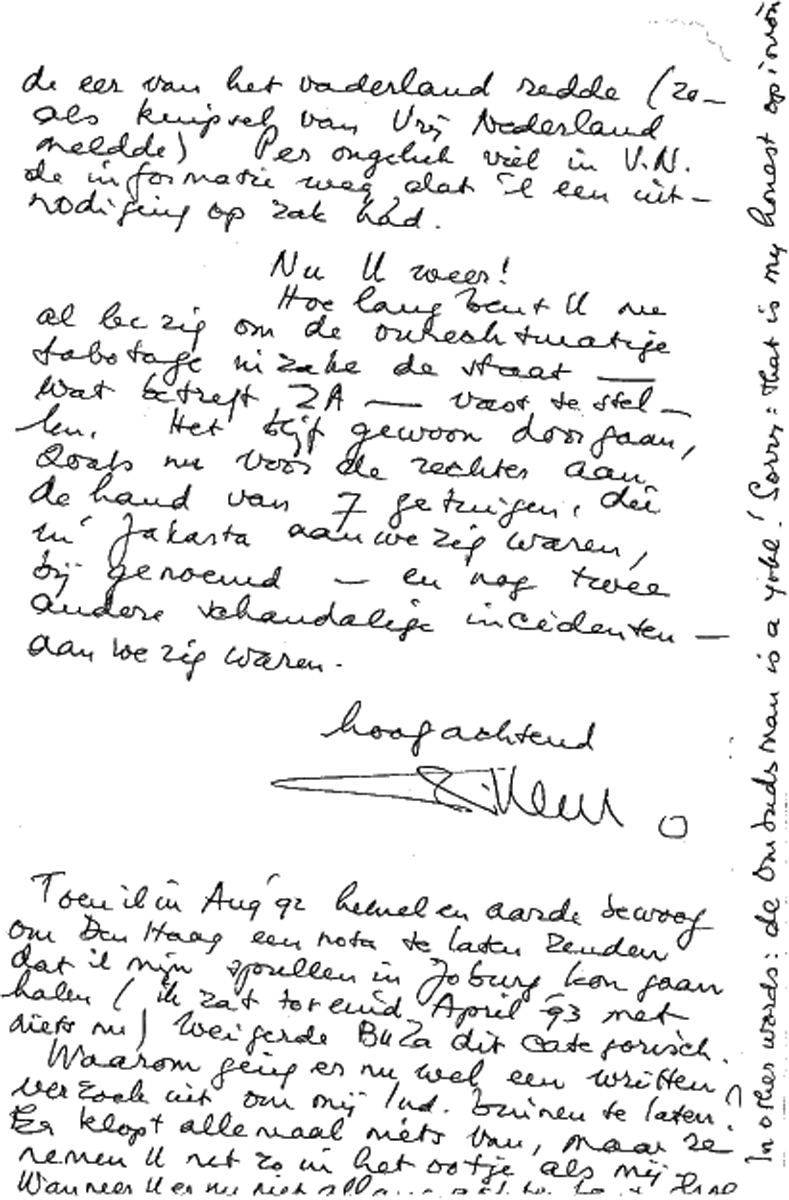 de eer van het vaderland redde (zo-
als knipsel van Vrij Nederland
meldde) Per ongeluk viel in V.N.
de informatie weg, dat ik een uit-
nodiging op zak had.
Nu U weer!
Hoe lang bent U nu
al bezig om de onrechtmatige
sabotage inzake de staat —
wat betreft ZA — vast te stel-
len. Het blijft gewoon doorgaan,
zoals nu voor de rechter aan
de hand van 7 getuigen, die
in Jakarta aanwezig waren,
bij genoemd — en nog twee
andere schandalige incidenten —
aanwezig waren.
hoogachtend
Toen ik in Aug '92 hemel en aarde bewoog
om Den Haag een nota te laten zenden
dat ik mijn spullen in Joburg kon gaan
halen (ik zat tot eind April '93 met
niets nu) weigerde BuZa dit categorisch.
Waarom ging er nu wel een written
verzoek uit om mij Ind. binnen te laten?
Er klopt allemaal niets van, maar ze
nemen U net zo in het ootje als mij
Wanneer U er nu niet
In other words: de Ombudsman is a yoke! Sorry: that is my honest opinion